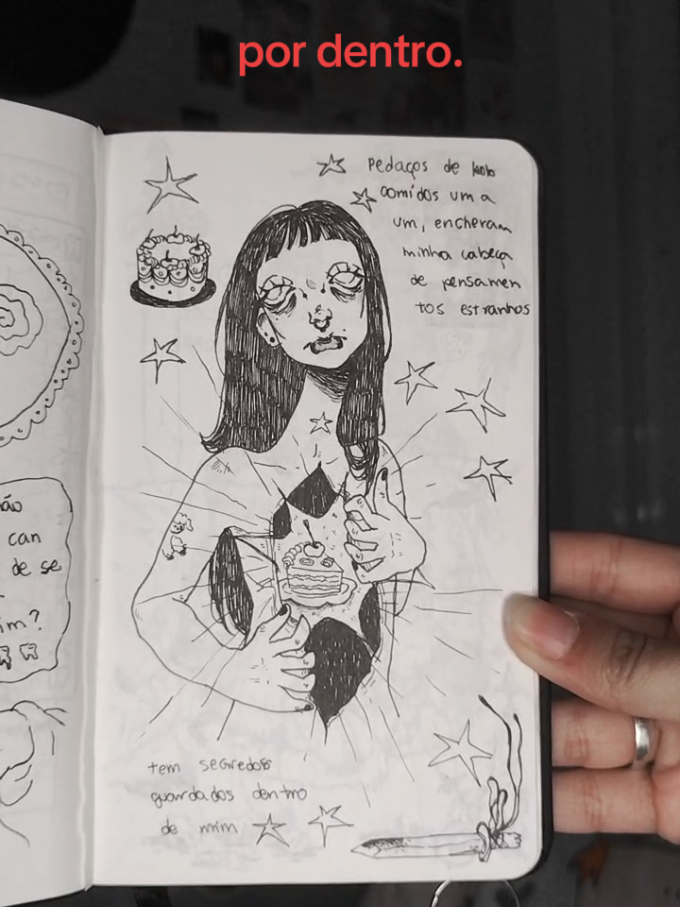 por dentro.
Pedaços de bolo
comidos um a
um, encheram
minha cabeça
de pensamen
tos estranhos
ão
can
de se
im?
tem segredos
guardados dentro
de mim